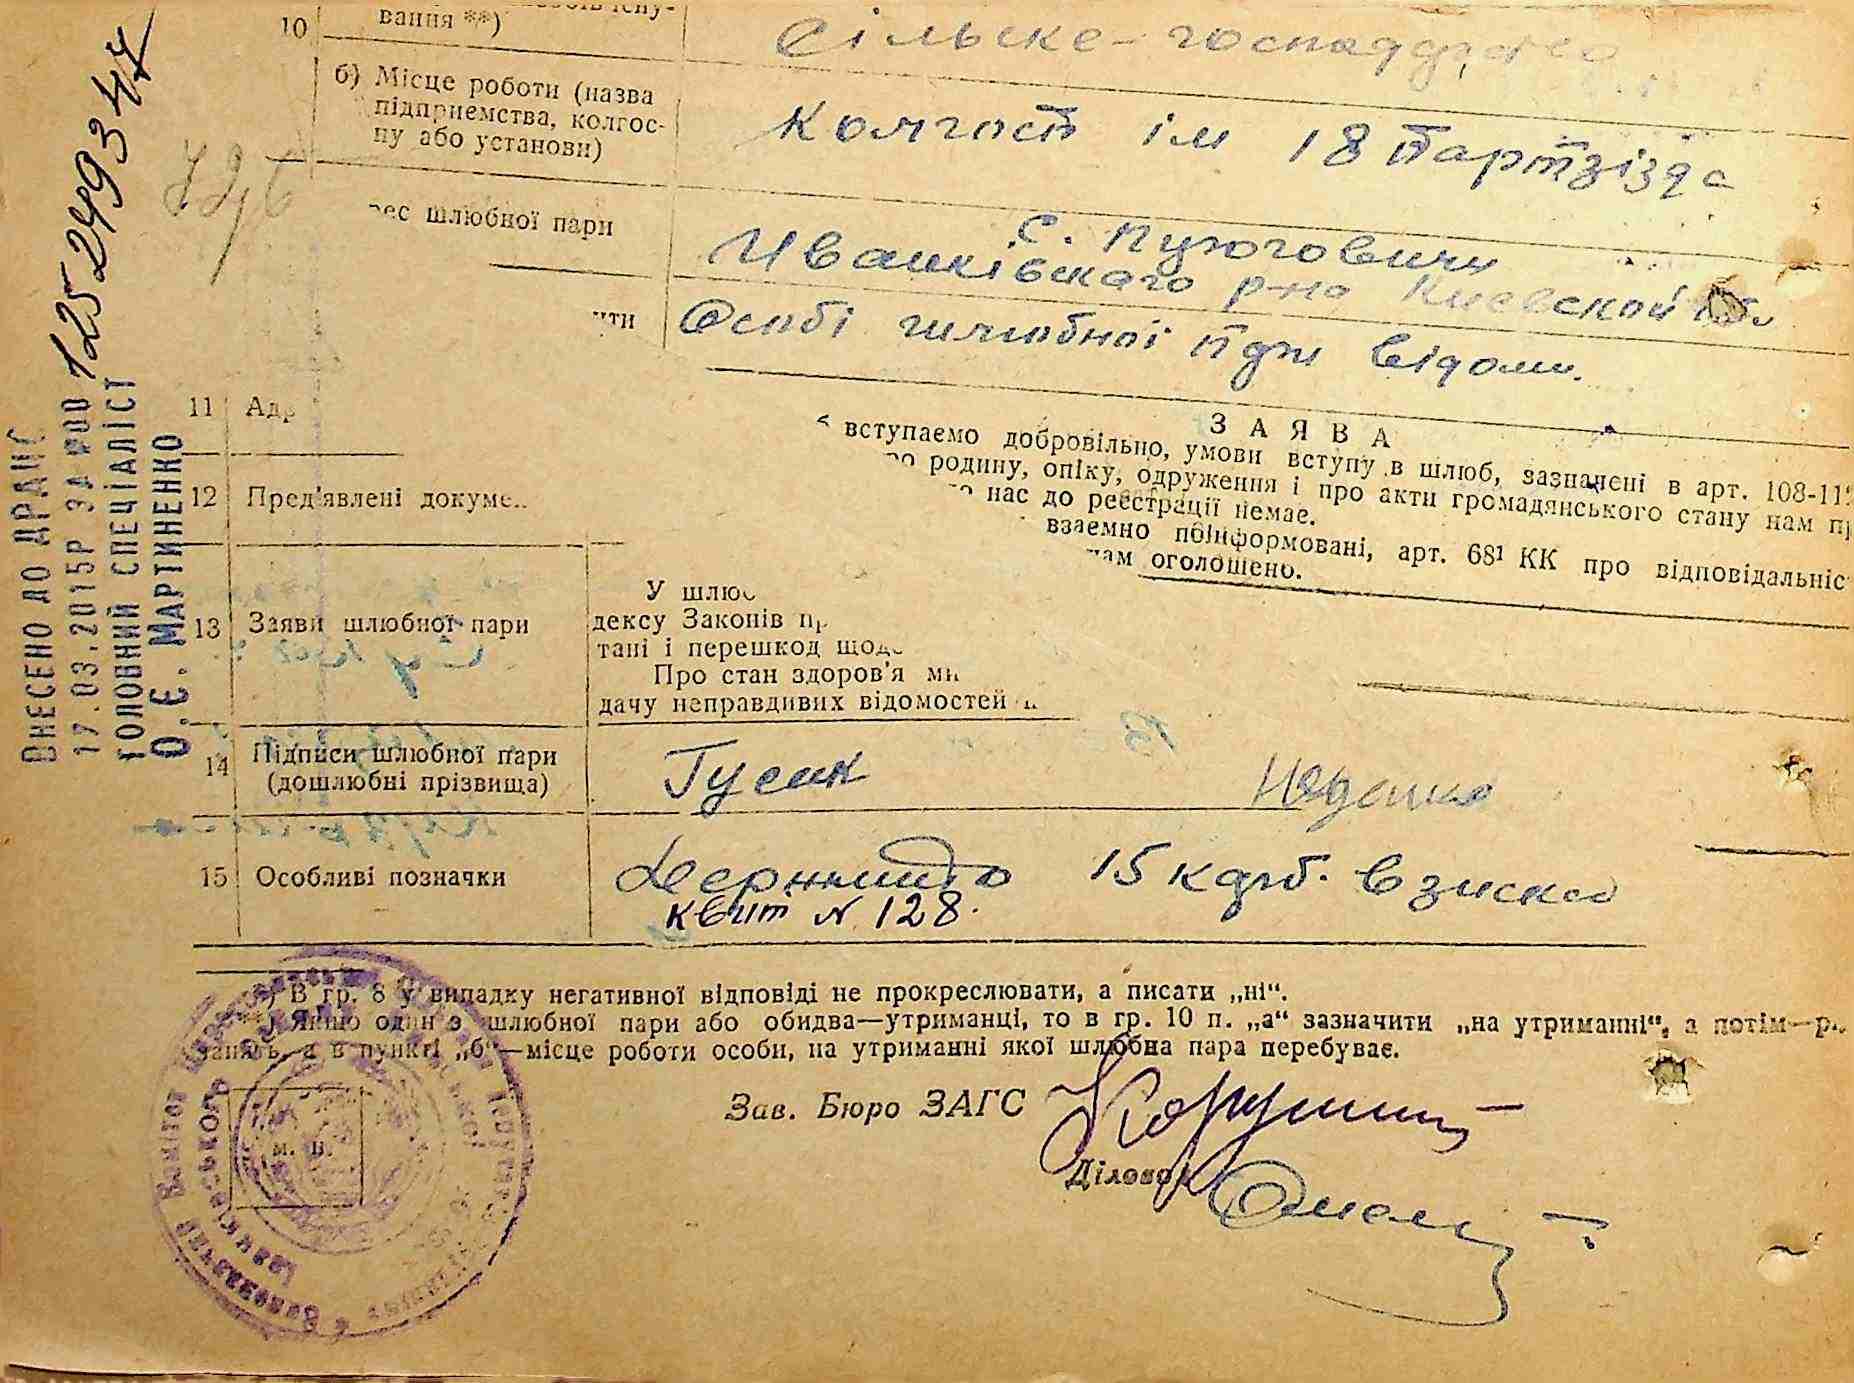 10
вання **)
Сільске-господарство
б) Місце роботи (назва
підприємства, колгос-
пу або установи)
Колгосп ім 18 Партзізда
рес шлюбної пари
с.
Иванківского р-на Киевской
ити
Особі шлюбної пари відоми.
11 Адр
12 Пред'явлені докуме
З А Я В А
вступаємо добровільно, умови вступу в шлюб, зазначені в арт. 108-11
ро родину, опіку, одруження і про акти громадянського стану нам
нас до реєстрації немає.
взаємно поінформовані, арт. 68¹ КК про відповідальніс
нам оголошено.
13 Заяви шлюбної пари
У шлюб
дексу Законів пр
тані і перешкод щодо
Про стан здоров'я ми
дачу неправдивих відомостей
14 Підписи шлюбної пари
(дошлюбні прізвища)
Гусак
15 Особливі позначки
Держмито 15 карб. взиска
квит N 128.
*) В гр. 8 у випадку негативної відповіді не прокреслювати, а писати „ні“.
**) Якщо один з шлюбної пари або обидва—утриманці, то в гр. 10 п. „а“ зазначити „на утриманні“, а потім—р
занять, а в пункті „б“—місце роботи особи, на утриманні якої шлюбна пара перебуває.
Зав. Бюро ЗАГС
Діловод
м. п.
ВНЕСЕНО ДО ДРАЦС
17.03.2015Р ЗА №00125249347
ГОЛОВНИЙ СПЕЦІАЛІСТ
О.Є. МАРТИНЕНКО